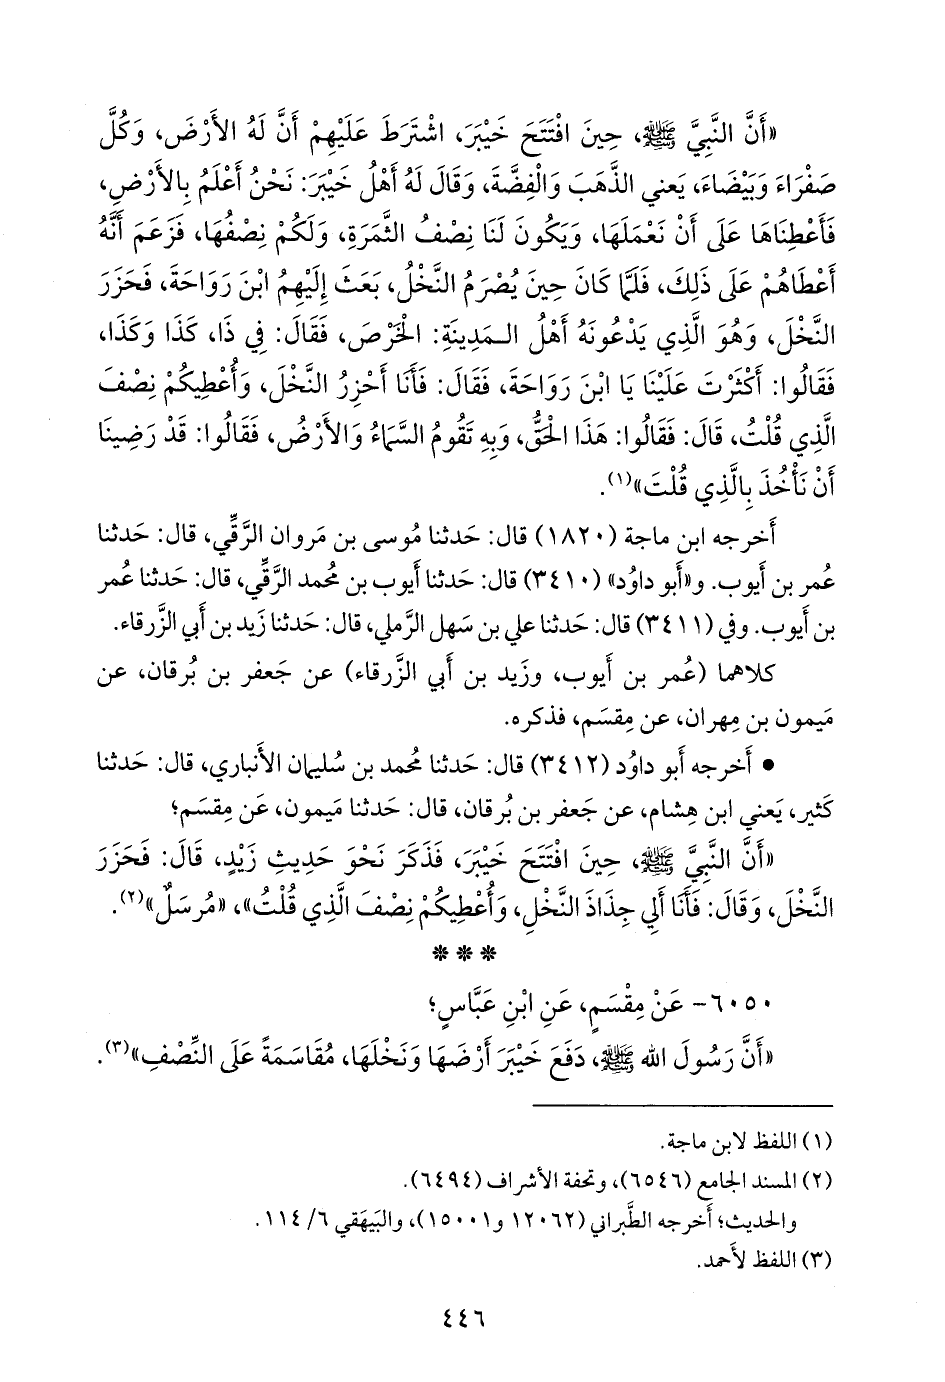 «أَنَّ النَّبِيَّ ﷺ، حِينَ افْتَتَحَ خَيْبَرَ، اشْتَرَطَ عَلَيْهِمْ أَنَّ لَهُ الأَرْضَ، وَكُلَّ
صَفْرَاءَ وَبَيْضَاءَ، يَعني الذَّهَبَ وَالْفِضَّةَ، وَقَالَ لَهُ أَهْلُ خَيْبَرَ: نَحْنُ أَعْلَمُ بِالأَرْضِ،
فَأَعْطِنَاهَا عَلَى أَنْ نَعْمَلَهَا، وَيَكُونَ لَنَا نِصْفُ الثَّمَرَةِ، وَلَكُمْ نِصْفُهَا، فَزَعَمَ أَنَّهُ
أَعْطَاهُمْ عَلَى ذَلِكَ، فَلَمَّا كَانَ حِينَ يُصْرَمُ النَّخْلُ، بَعَثَ إِلَيْهِمُ ابْنَ رَوَاحَةَ، فَحَزَرَ
النَّخْلَ، وَهُوَ الَّذِي يَدْعُونَهُ أَهْلُ الـمَدِينَةِ: الْخَرْصَ، فَقَالَ: فِي ذَا، كَذَا وَكَذَا،
فَقَالُوا: أَكْثَرْتَ عَلَيْنَا يَا ابْنَ رَوَاحَةَ، فَقَالَ: فَأَنَا أَحْزِرُ النَّخْلَ، وَأُعْطِيكُمْ نِصْفَ
الَّذِي قُلْتُ، قَالَ: فَقَالُوا: هَذَا الْحَقُّ، وَبِهِ تَقُومُ السَّمَاءُ وَالأَرْضُ، فَقَالُوا: قَدْ رَضِينَا
أَنْ نَأْخُذَ بِالَّذِي قُلْتَ»(١).
أَخرجه ابن ماجة (١٨٢٠) قال: حَدثنا مُوسى بن مَروان الرَّقِّي، قال: حَدثنا
عُمر بن أَيوب. و«أَبو داوُد» (٣٤١٠) قال: حَدثنا أَيوب بن مُحمد الرَّقِّي، قال: حَدثنا عُمر
بن أَيوب. وفي (٣٤١١) قال: حَدثنا علي بن سَهل الرَّملي، قال: حَدثنا زَيد بن أَبي الزَّرقاء.
كلاهما (عُمر بن أَيوب، وزَيد بن أَبي الزَّرقاء) عن جَعفر بن بُرقان، عن
مَيمون بن مِهران، عن مِقسَم، فذكره.
• أَخرجه أَبو داوُد (٣٤١٢) قال: حَدثنا مُحمد بن سُليمان الأَنباري، قال: حَدثنا
كَثير، يَعني ابن هِشام، عن جَعفر بن بُرقان، قال: حَدثنا مَيمون، عَن مِقسَم؛
«أَنَّ النَّبِيَّ ﷺ، حِينَ افْتَتَحَ خَيْبَرَ، فَذَكَرَ نَحْوَ حَدِيثِ زَيْدٍ، قَالَ: فَحَزَرَ
النَّخْلَ، وَقَالَ: فَأَنَا أَلِي جِذَاذَ النَّخْلِ، وَأُعْطِيكُمْ نِصْفَ الَّذِي قُلْتُ»، «مُرسَلٌ»(٢).
* * *
٦٠٥٠- عَنْ مِقْسَمٍ، عَنِ ابْنِ عَبَّاسٍ؛
«أَنَّ رَسُولَ الله ﷺ، دَفَعَ خَيْبَرَ أَرْضَهَا وَنَخْلَهَا، مُقَاسَمَةً عَلَى النِّصْفِ»(٣).
(١) اللفظ لابن ماجة.
(٢) المسند الجامع (٦٥٤٦)، وتحفة الأشراف (٦٤٩٤).
والحديث؛ أَخرجه الطَّبراني (١٢٠٦٢ و١٥٠٠١)، والبَيهَقي ٦/ ١١٤.
(٣) اللفظ لأَحمد.
٤٤٦